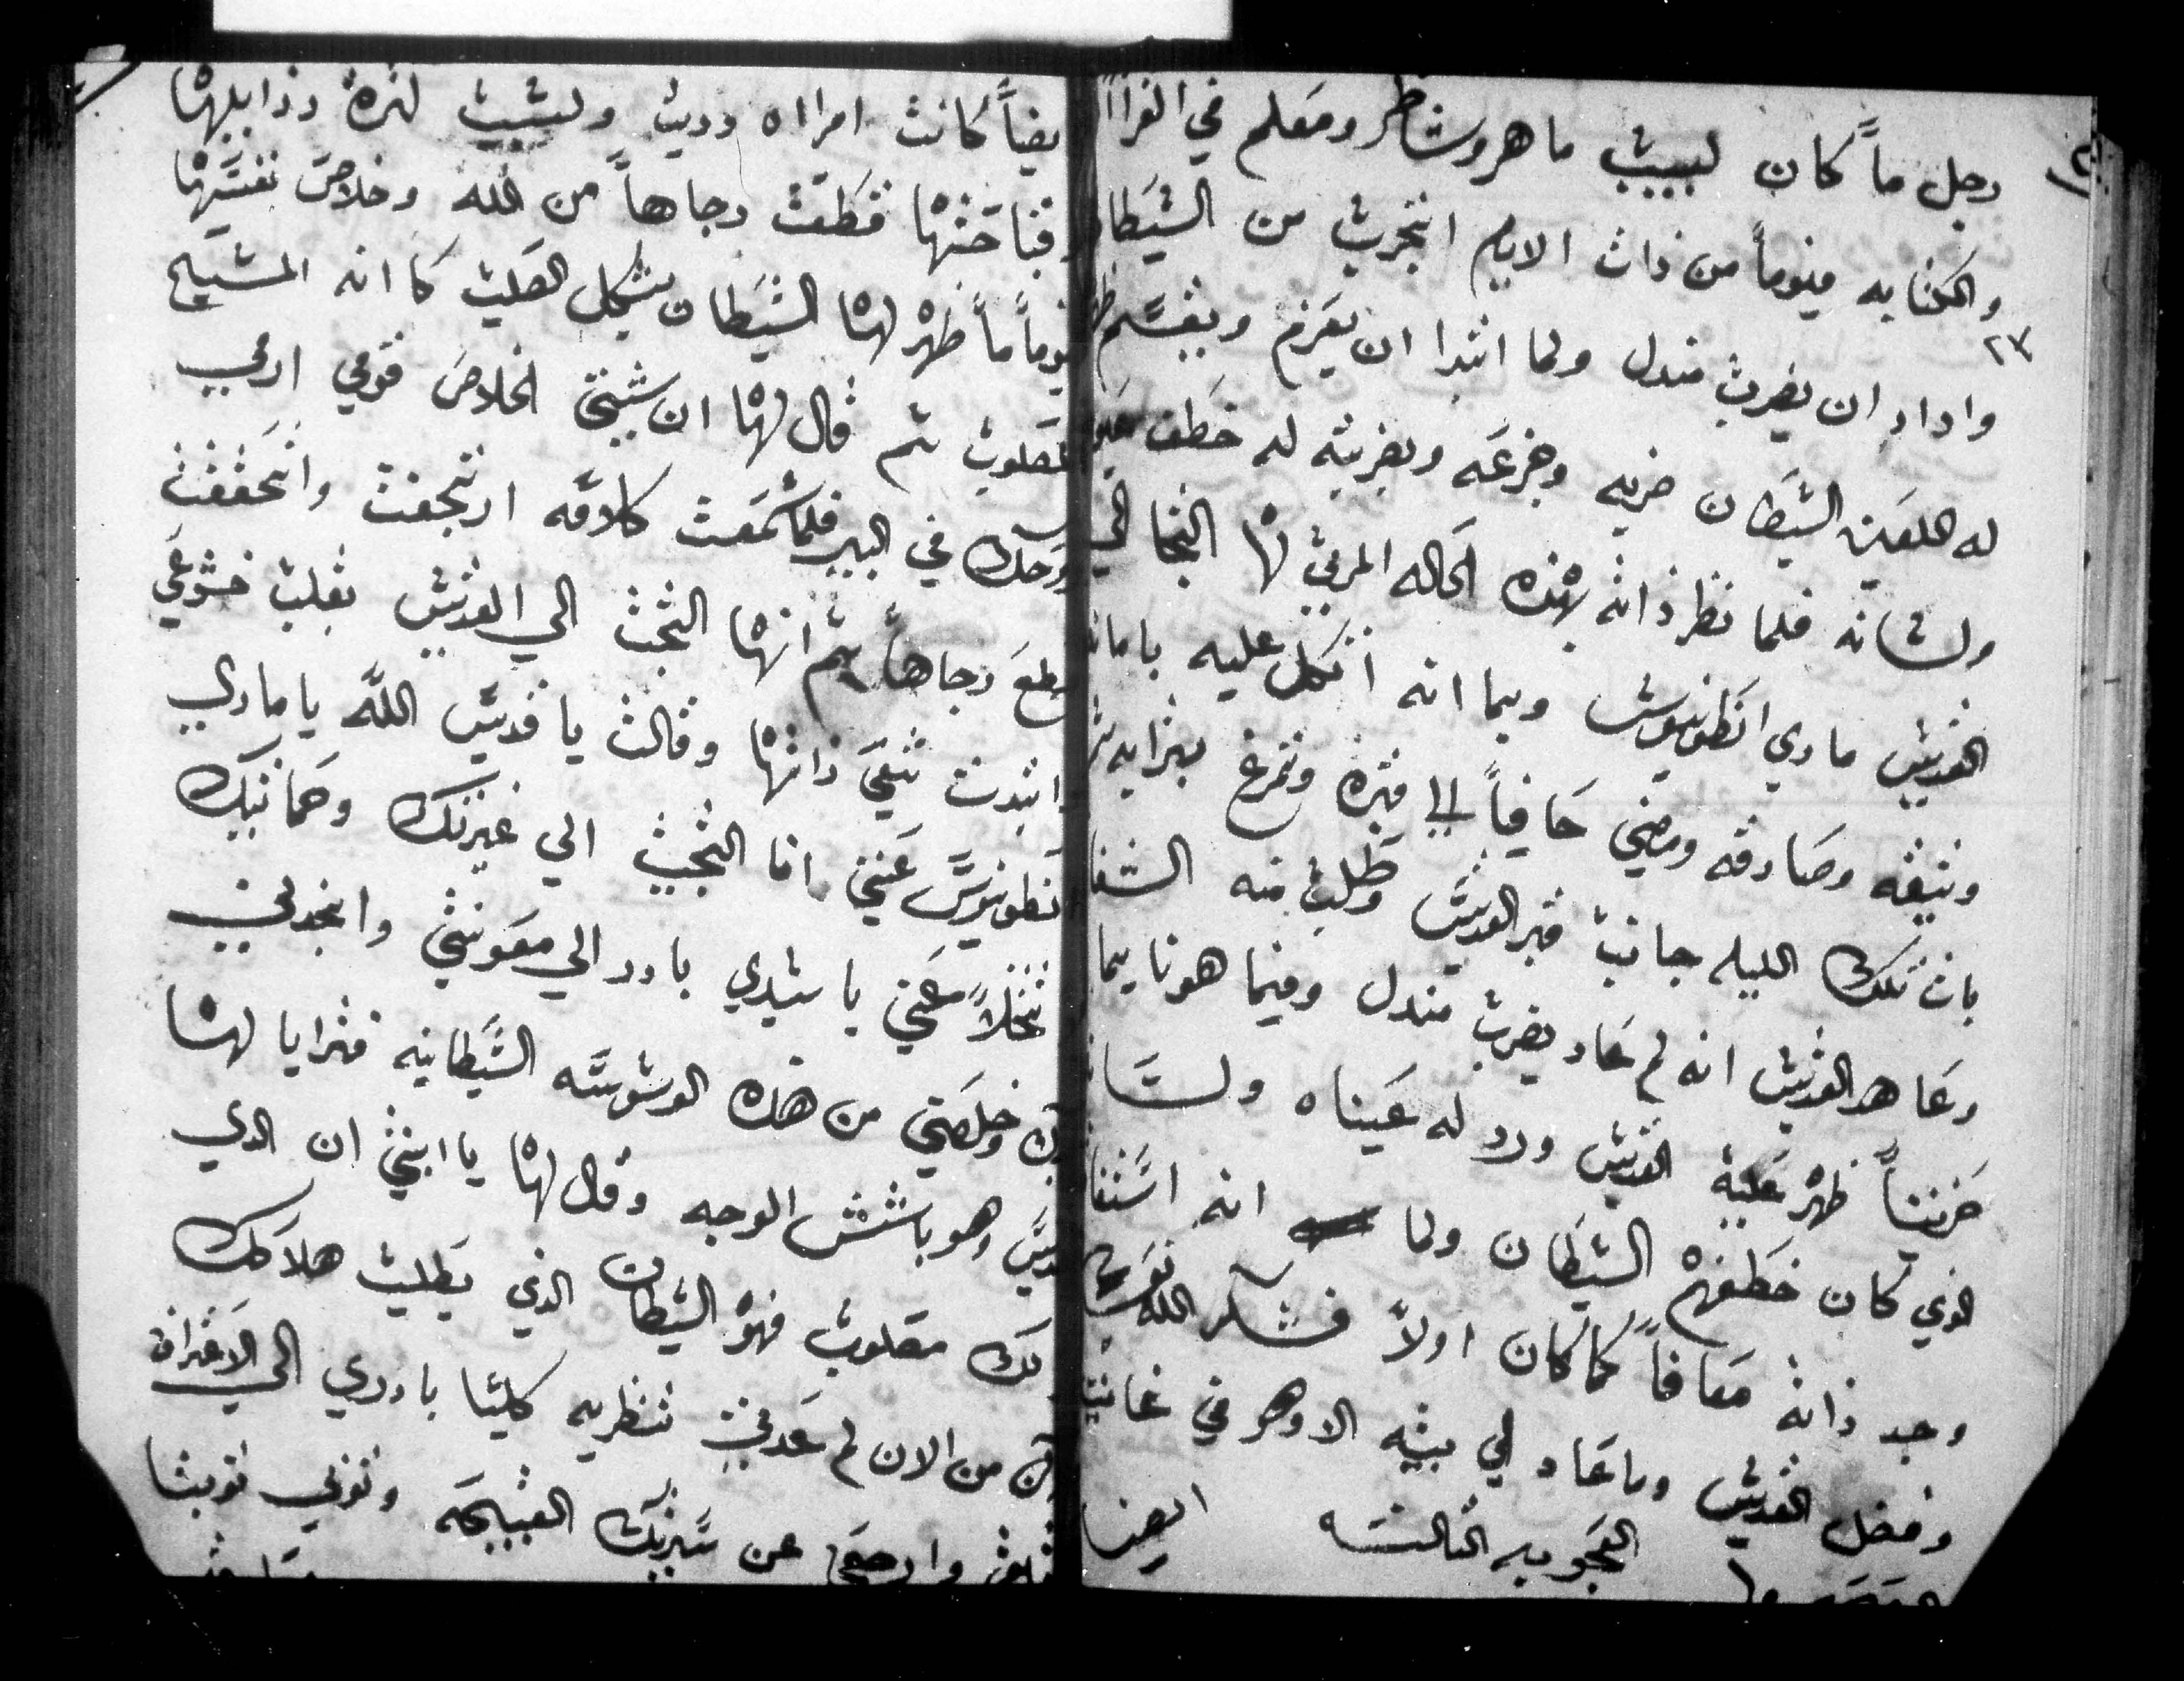 رجل ماً كان لبيب ماهر وشاطر ومعلم في القراا
والكتابه فيوماً من ذات الايام انجرب من الشيطا
٢٧
واراد ان يضرب مندل ولما ابتدا ان يعزم ويقسم
له اللعين الشيطان ضربه وجزعه وبضربته له خطف
ولسانه فلما نظر ذاته بهذه الحاله المرتي لها التجا الي
القديس ماري انطونيوس وبما انه اتكل عليه بامانه
وثيقه وصادقه ومضي حافياً الي قبره وتمرغ بترابه
بات تلك الليله جانب قبر القديس وطلب منه الشفا
وعاهد القديس انه لم عاد يضرب مندل وفيما هو نايما
حزيناً ظهر عليه القديس ورد له عيناه ولسا
الذي كان خطفهم الشيطان ولما انه استفا
وجد ذاته معافاً كما كان اولاً فشكر الله
وفضل القديس وما عاد لي بيته الا وهو في غايت
العجوبه التالته ايضا
يضاً كانت امرااه رديت ولسبب لتره رذايلها
وقباحتها فقطعت رجاها من الله وخلاص نفسها
فيوماً ما ظهر لها الشيطان بشكل الصليب كانه المسيح
المصلوب ثم قال لها ان شيتي الخلاص قومي ارمي
روحك في البير فلما سمعت كلامه ارتجفت واتحققت
قطع رجاها ثم انها التجت الي القديس بقلب خشوعي
وابتدت تنعي ذاتها وقالت يا قديس الله يا ماري
انطونيوس عيني انا التجيت الي غيرتك وحمايتك
تتخلا عني يا سيدي بادر الي معونتي وانجدني
وخلصني من هذه الوسوسه الشيطانيه فترايا لها
القديس وهو باشش الوجه وقال لها يا ابنتي ان الذي
لك مصلوب فهو الشيطان الذي يطلب هلاكك
من الان لم عدتي تنظريه كليا بادري الي الاعتراف
وارجعي عن سيرتك القبيحه وتوبي توبتا